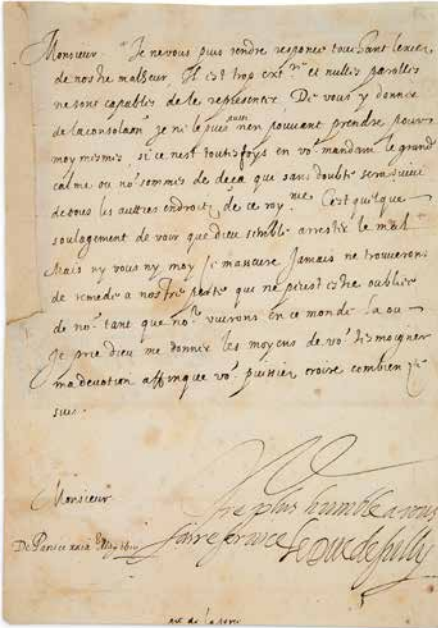 Monsieur Je ne vous puis rendre responce touchant lexces
de nostre malheur Il est trop ext.re et nulles parolles
ne sont capables de le representer De vous y donner
de la consolaon je ne le puis aussi nen pouvant prendre pour
moy mesmes si ce nest toutesfoys en vo.s mandant le grand
calme ou no.s sommes de deca que sans doubte sera suivi
de tous les aultres endroits de ce roy.me C'est quelque
soulagement de voir que dieu semble arrester le mal
Mais ny vous ny moy je masseure Jamais ne trouverons
de remede a nostre perte qui ne peust estre oubliee
de no.s tant que no.s vivrons en ce monde La ou
Je prie dieu me donner les moyens de vo.s tesmoigner
ma devotion affin que vo.s puissiez croire combien je
suis.
Monsieur
Vre plus humble a vous
faire service Le Duc de Sully
De Paris ce xxix May 1610